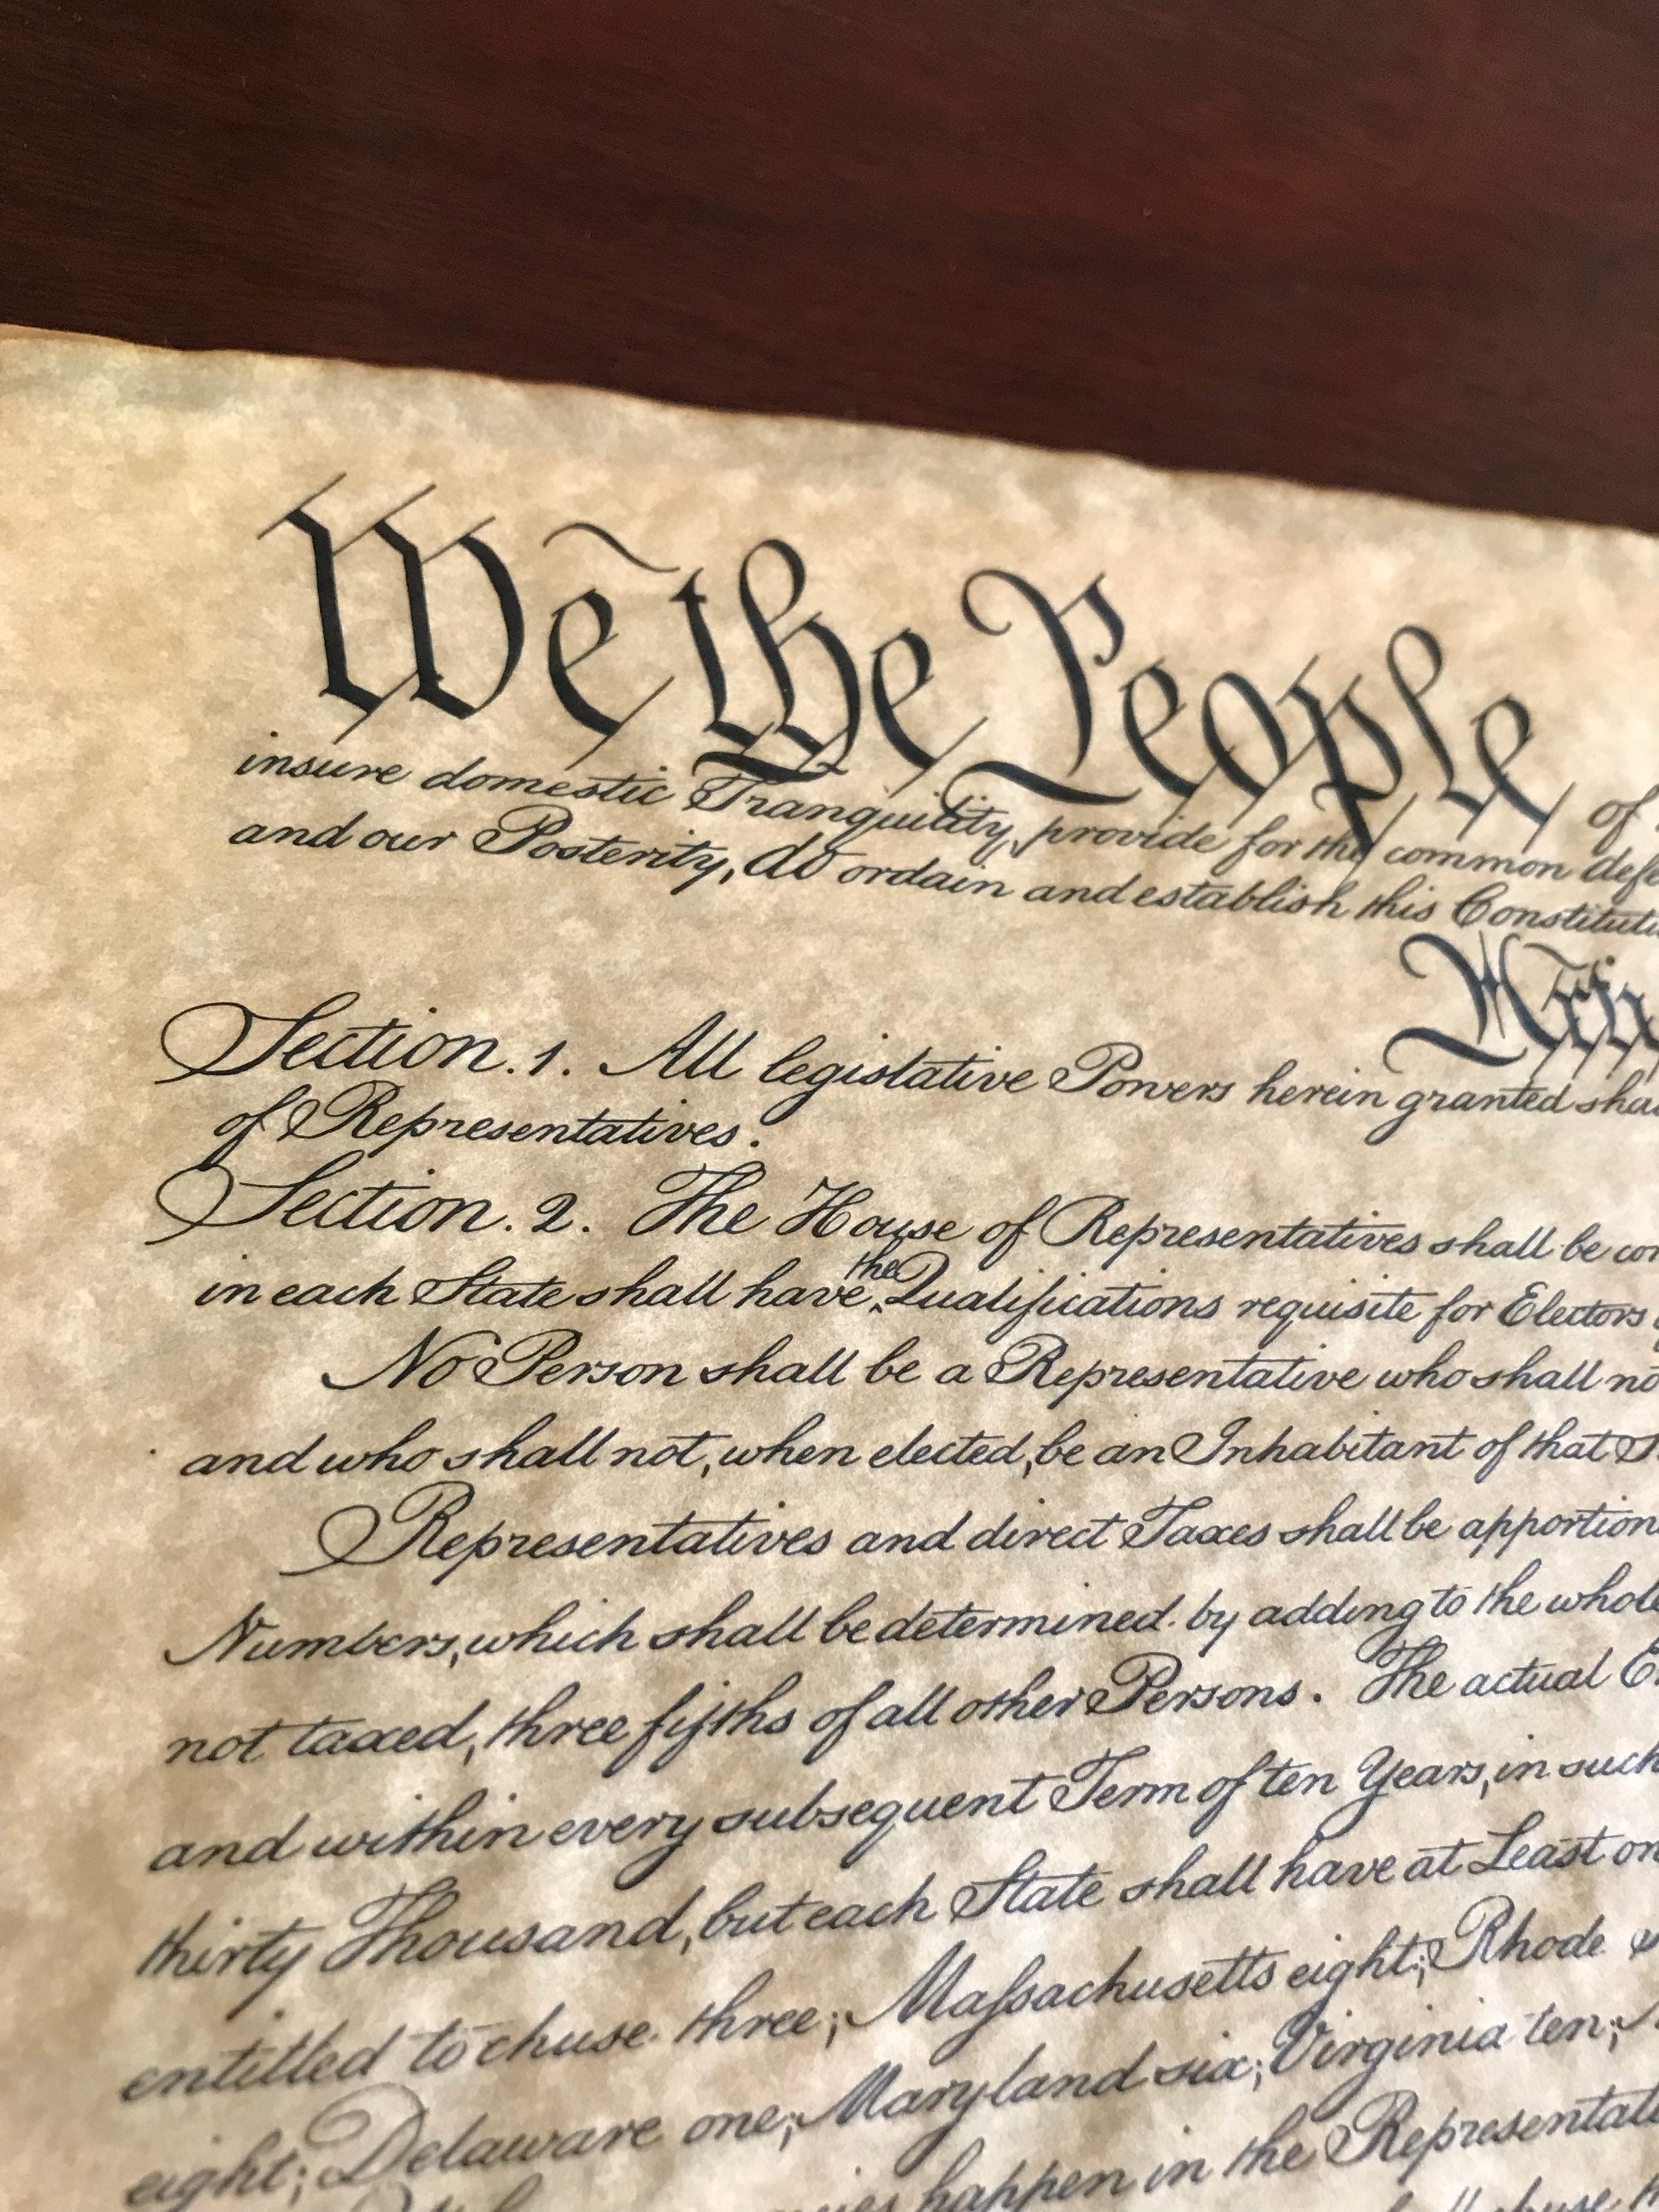 We the People of
insure domestic Tranquility, provide for the common defe
and our Posterity, do ordain and establish this Constituti
Artic
Section. 1. All legislative Powers herein granted shal
of Representatives.
Section. 2. The House of Representatives shall be com
the
in each State shall have Qualifications requisite for Electors
No Person shall be a Representative who shall no
and who shall not, when elected, be an Inhabitant of that S
Representatives and direct Taxes shall be apportion
Numbers, which shall be determined by adding to the whole
not taxed, three fifths of all other Persons. The actual E
and within every subsequent Term of ten Years, in such
thirty Thousand, but each State shall have at Least on
entitled to chuse three; Maſsachusetts eight; Rhode
eight; Delaware one; Maryland six; Virginia ten;
happen in the Representati
chuse